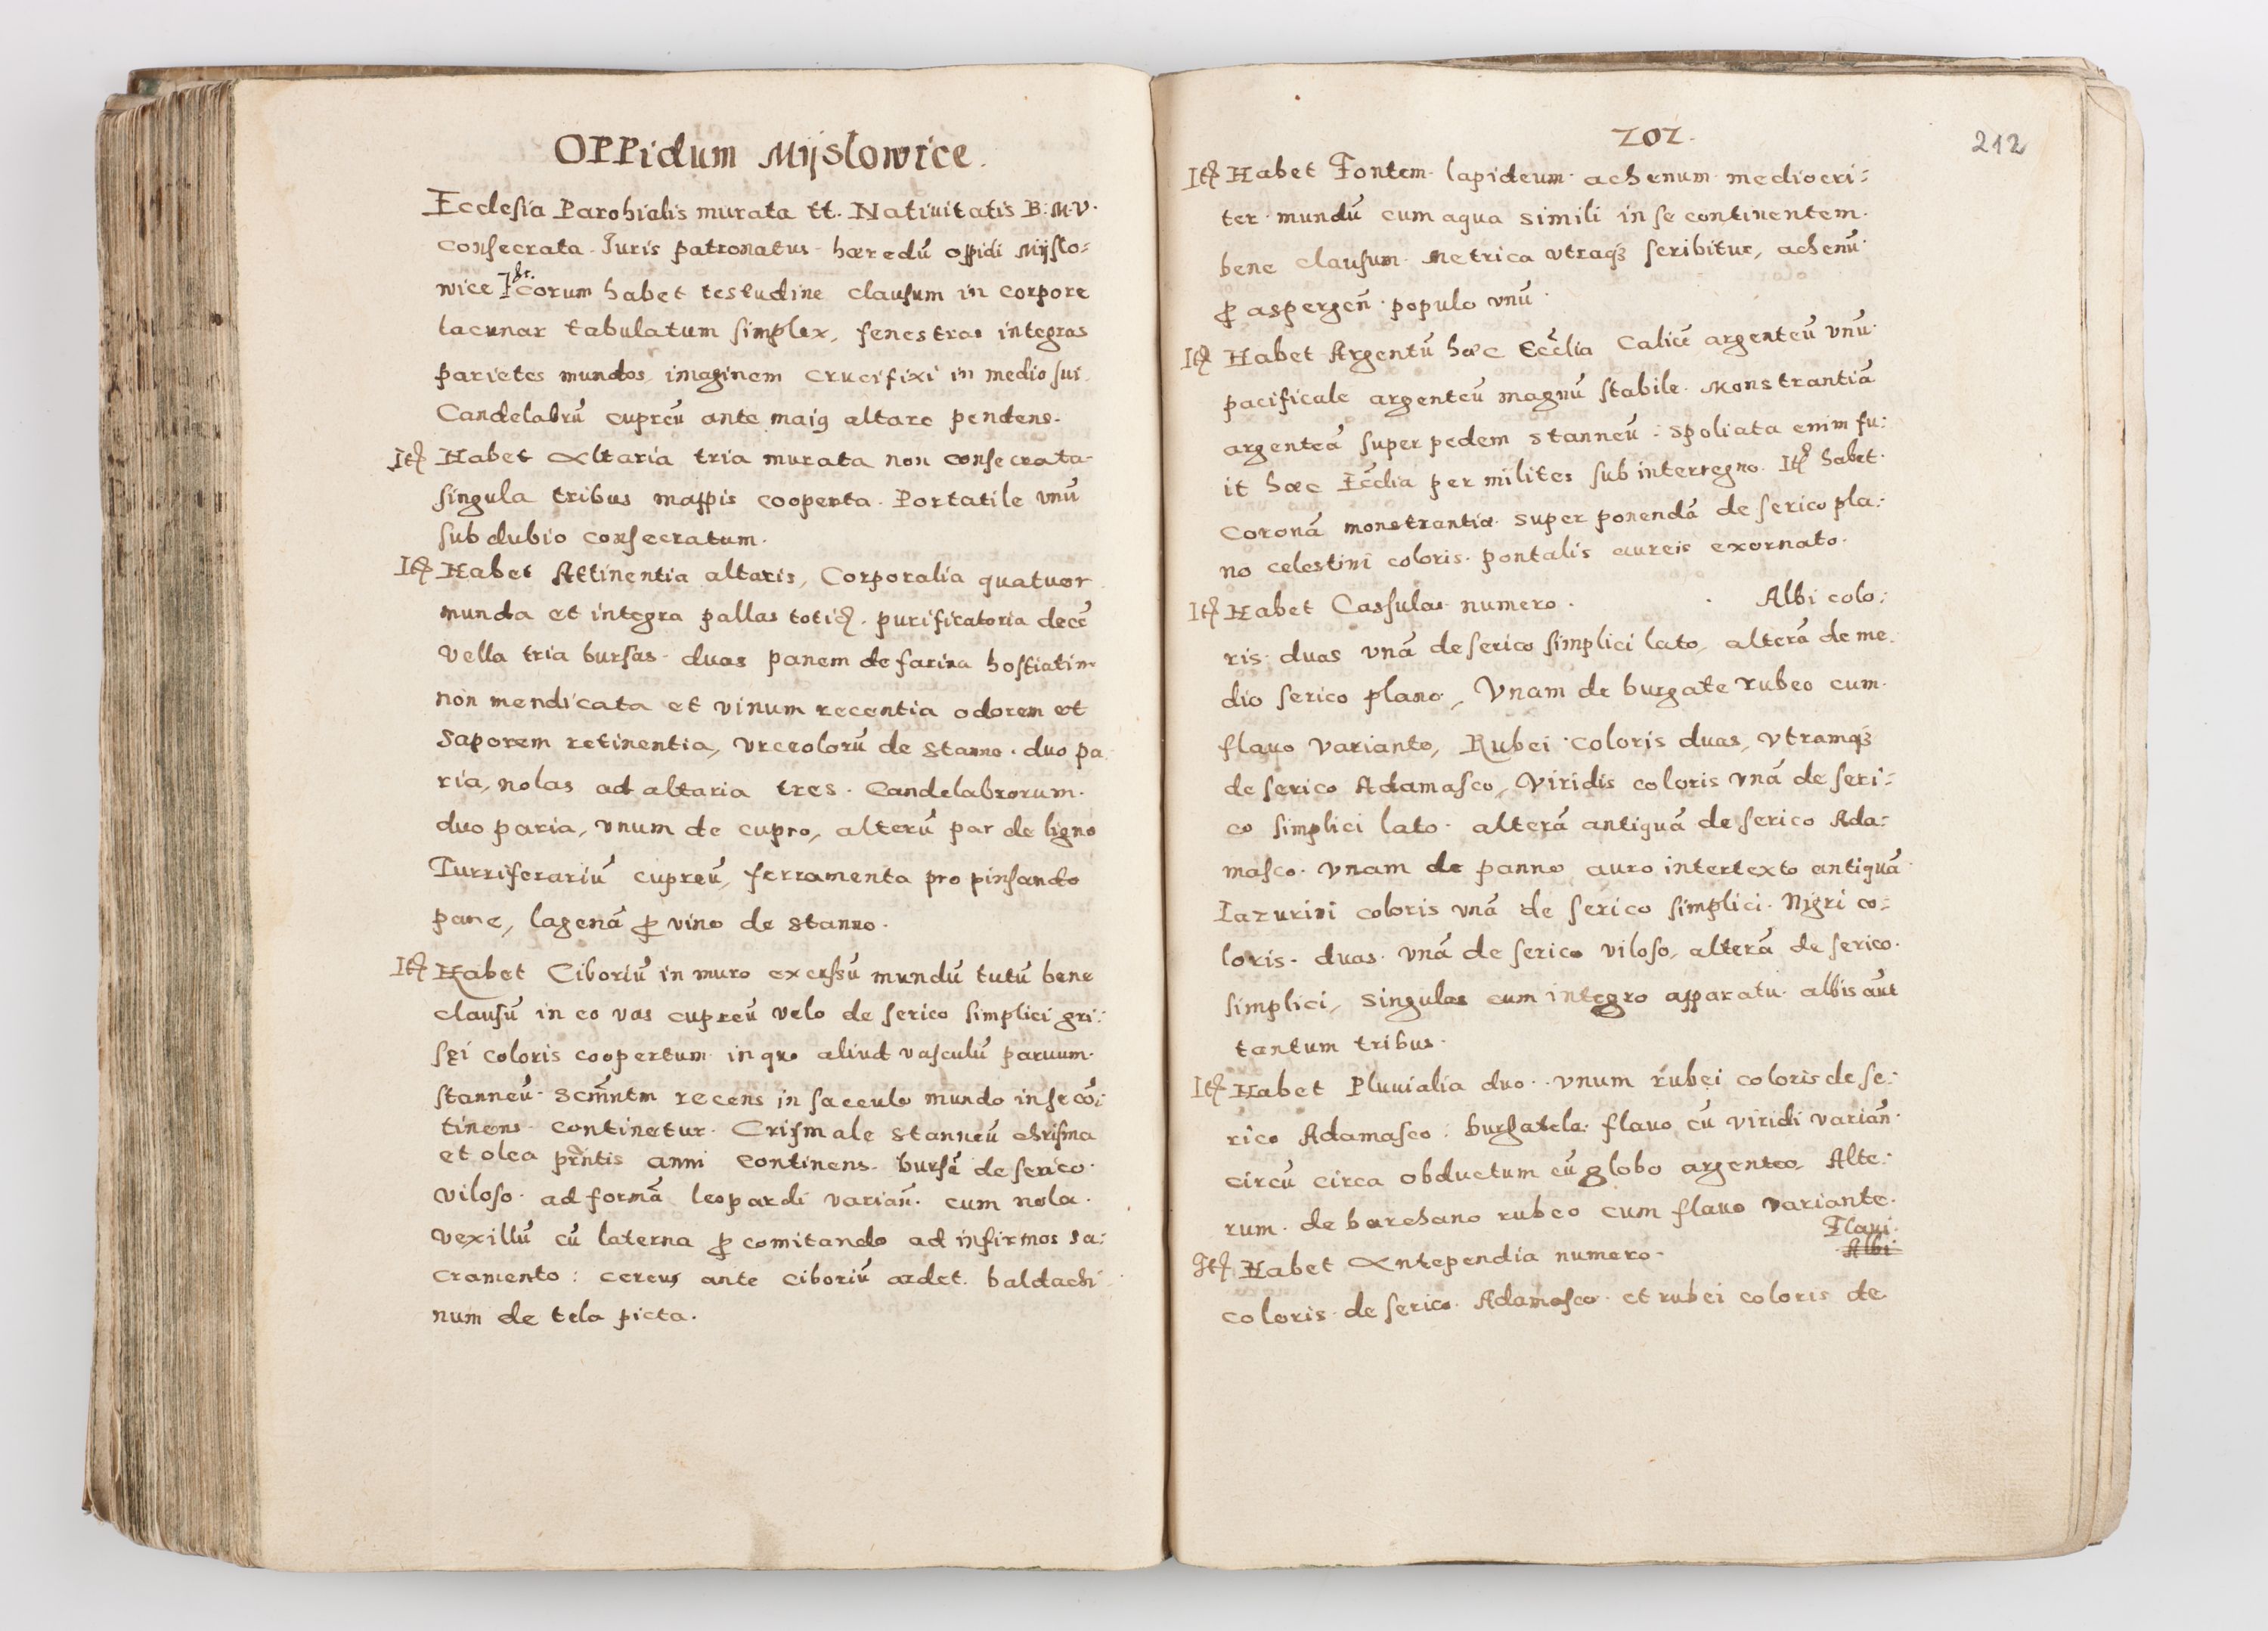 OPPidum Mijslowice.
Ecclesia Parohialis murata tt. Natiuitatis B: M. V.
consecrata. Iuris patronatus hæredū oppidi Mijslo=
wice corum habet testudine clausum in corpore
lacunar tabulatum simplex, fenestras integras
parietes mundos, imaginem Crucifixi in medio sui.
Candelabrū cupreū ante maiꝰ altare pendens.
Itꝫ Habet Altaria tria murata non consecrata
singula tribus mappis cooperta. Portatile vnū
sub dubio consecratum.
Itꝫ Habet Attinentia altaris, Corporalia quatuor
munda et integra pallas totiꝫ. purificatoria decē
Vella tria bursas duas panem de farina hostiatim
non mendicata et vinum recentia odorem et
saporem retinentia, vrceolorū de stanno. duo pa
ria, nolas ad altaria tres. Candelabrorum.
duo paria, vnum de cupro, alterū par de ligno
Turriferariū cupreū, ferramenta pro pinsando
pane, lagenā ꝓ vino de stanno.
Itꝫ Habet Ciboriū in muro excissū mundū tutū bene
clausū in eo vas cupreū velo de serico simplici gri:
sęi coloris coopertum in quo aliud vasculū paruum.
stanneū. Scm̄ntm recens in sacculo mundo in se cō:
tinens. continetur. Crismale stanneū chrisma
et olea prn̄tis anni continens. bursā de serico.
viloso. ad formā leopardi varian̄. cum nola.
vexillū cū laterna ꝓ comitando ad infirmos sa:
cramento: cereus ante ciboriū ardet. baldachi
num de tela picta.
202.
212
Itꝫ Habet Fontem lapideum achenum mediocri:
ter mundū cum aqua simili in se continentem.
bene clausum. Metrica vtraqꝫ scribitur, achenū
ꝓ aspergen̄ populo vnū.
Itꝫ Habet Argentū hæc Ecc̄lia Calicē argenteū vnū.
pacificale argenteū magnū stabile. Monstrantiā
argenteā super pedem stanneū: spoliata enim fu:
it hæc Ecc̄lia per milites sub interregno. Itꝫ habet.
Coronā monstrantiæ super ponendā de serico pla:
no celestini coloris. pontalis aureis exornato.
Itꝫ Habet Cassulas numero. Albi colo:
ris. duas vnā de serico simplici lato, alterā de me.
dio serico plano, Vnam de burgate rubeo cum.
flauo variante, Rubei coloris duas, vtramqꝫ
de serico Adamasco, Viridis coloris vnā de seri:
co simplici lato. alterā antiquā de serico Ada:
masco. vnam de panno auro intertexto antiquā
Iazurini coloris vnā de serico simplici. Nigri co:
loris. duas. vnā de serico viloso, alterā de serico.
simplici, singulas cum integro apparatu. albis aūt
tantum tribus.
Itꝫ Habet Pluuialia duo. vnum rubei coloris de se:
rico Adamasco: burgatela flauo cū viridi varian̄.
circū circa obductum cū globo argenteo, Alte:
rum. de barchano rubeo cum flauo variante.
Itꝫ Habet Antependia numero. Flaui. Albi
coloris de serico. Adamasco. et rubei coloris de